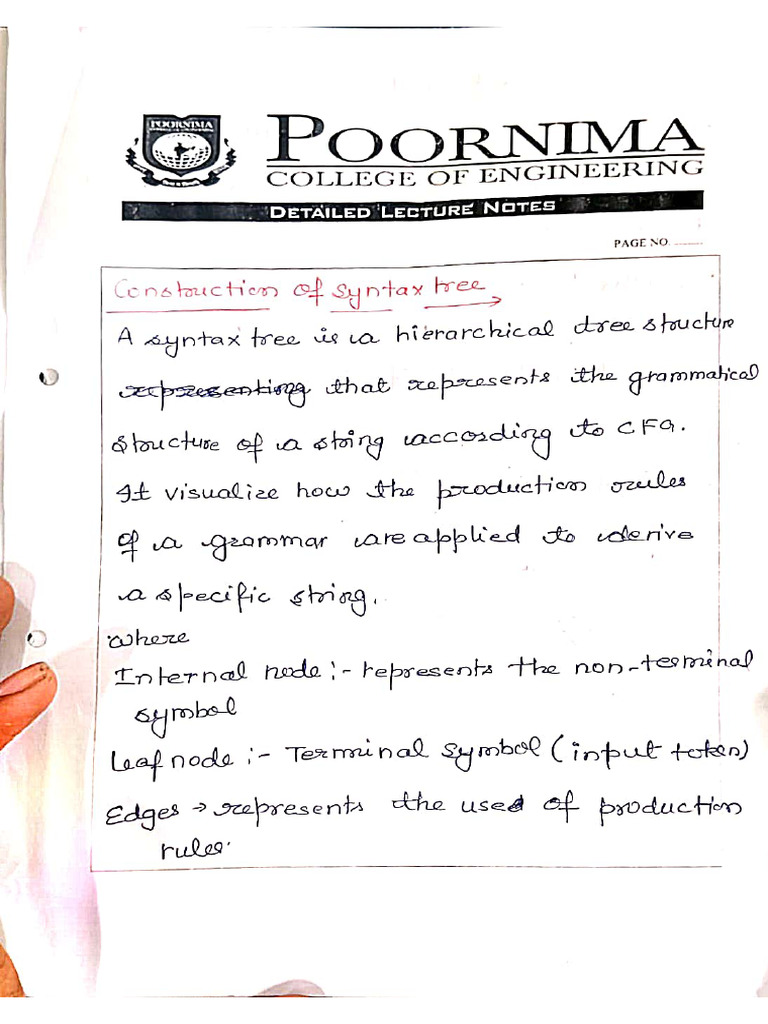 POORNIMA
POORNIMA
COLLEGE OF ENGINEERING
DETAILED LECTURE NOTES
PAGE NO. ..........
Construction of syntax tree
A syntax tree is a hierarchical tree structure
representing that represents the grammatical
structure of a string according to CFG.
It visualize how the production rules
of a grammar are applied to derive
a specific string.
where
Internal node :- represents the non-terminal
symbol
Leaf node :- Terminal symbol (input token)
Edges → represents the used of production
rules.